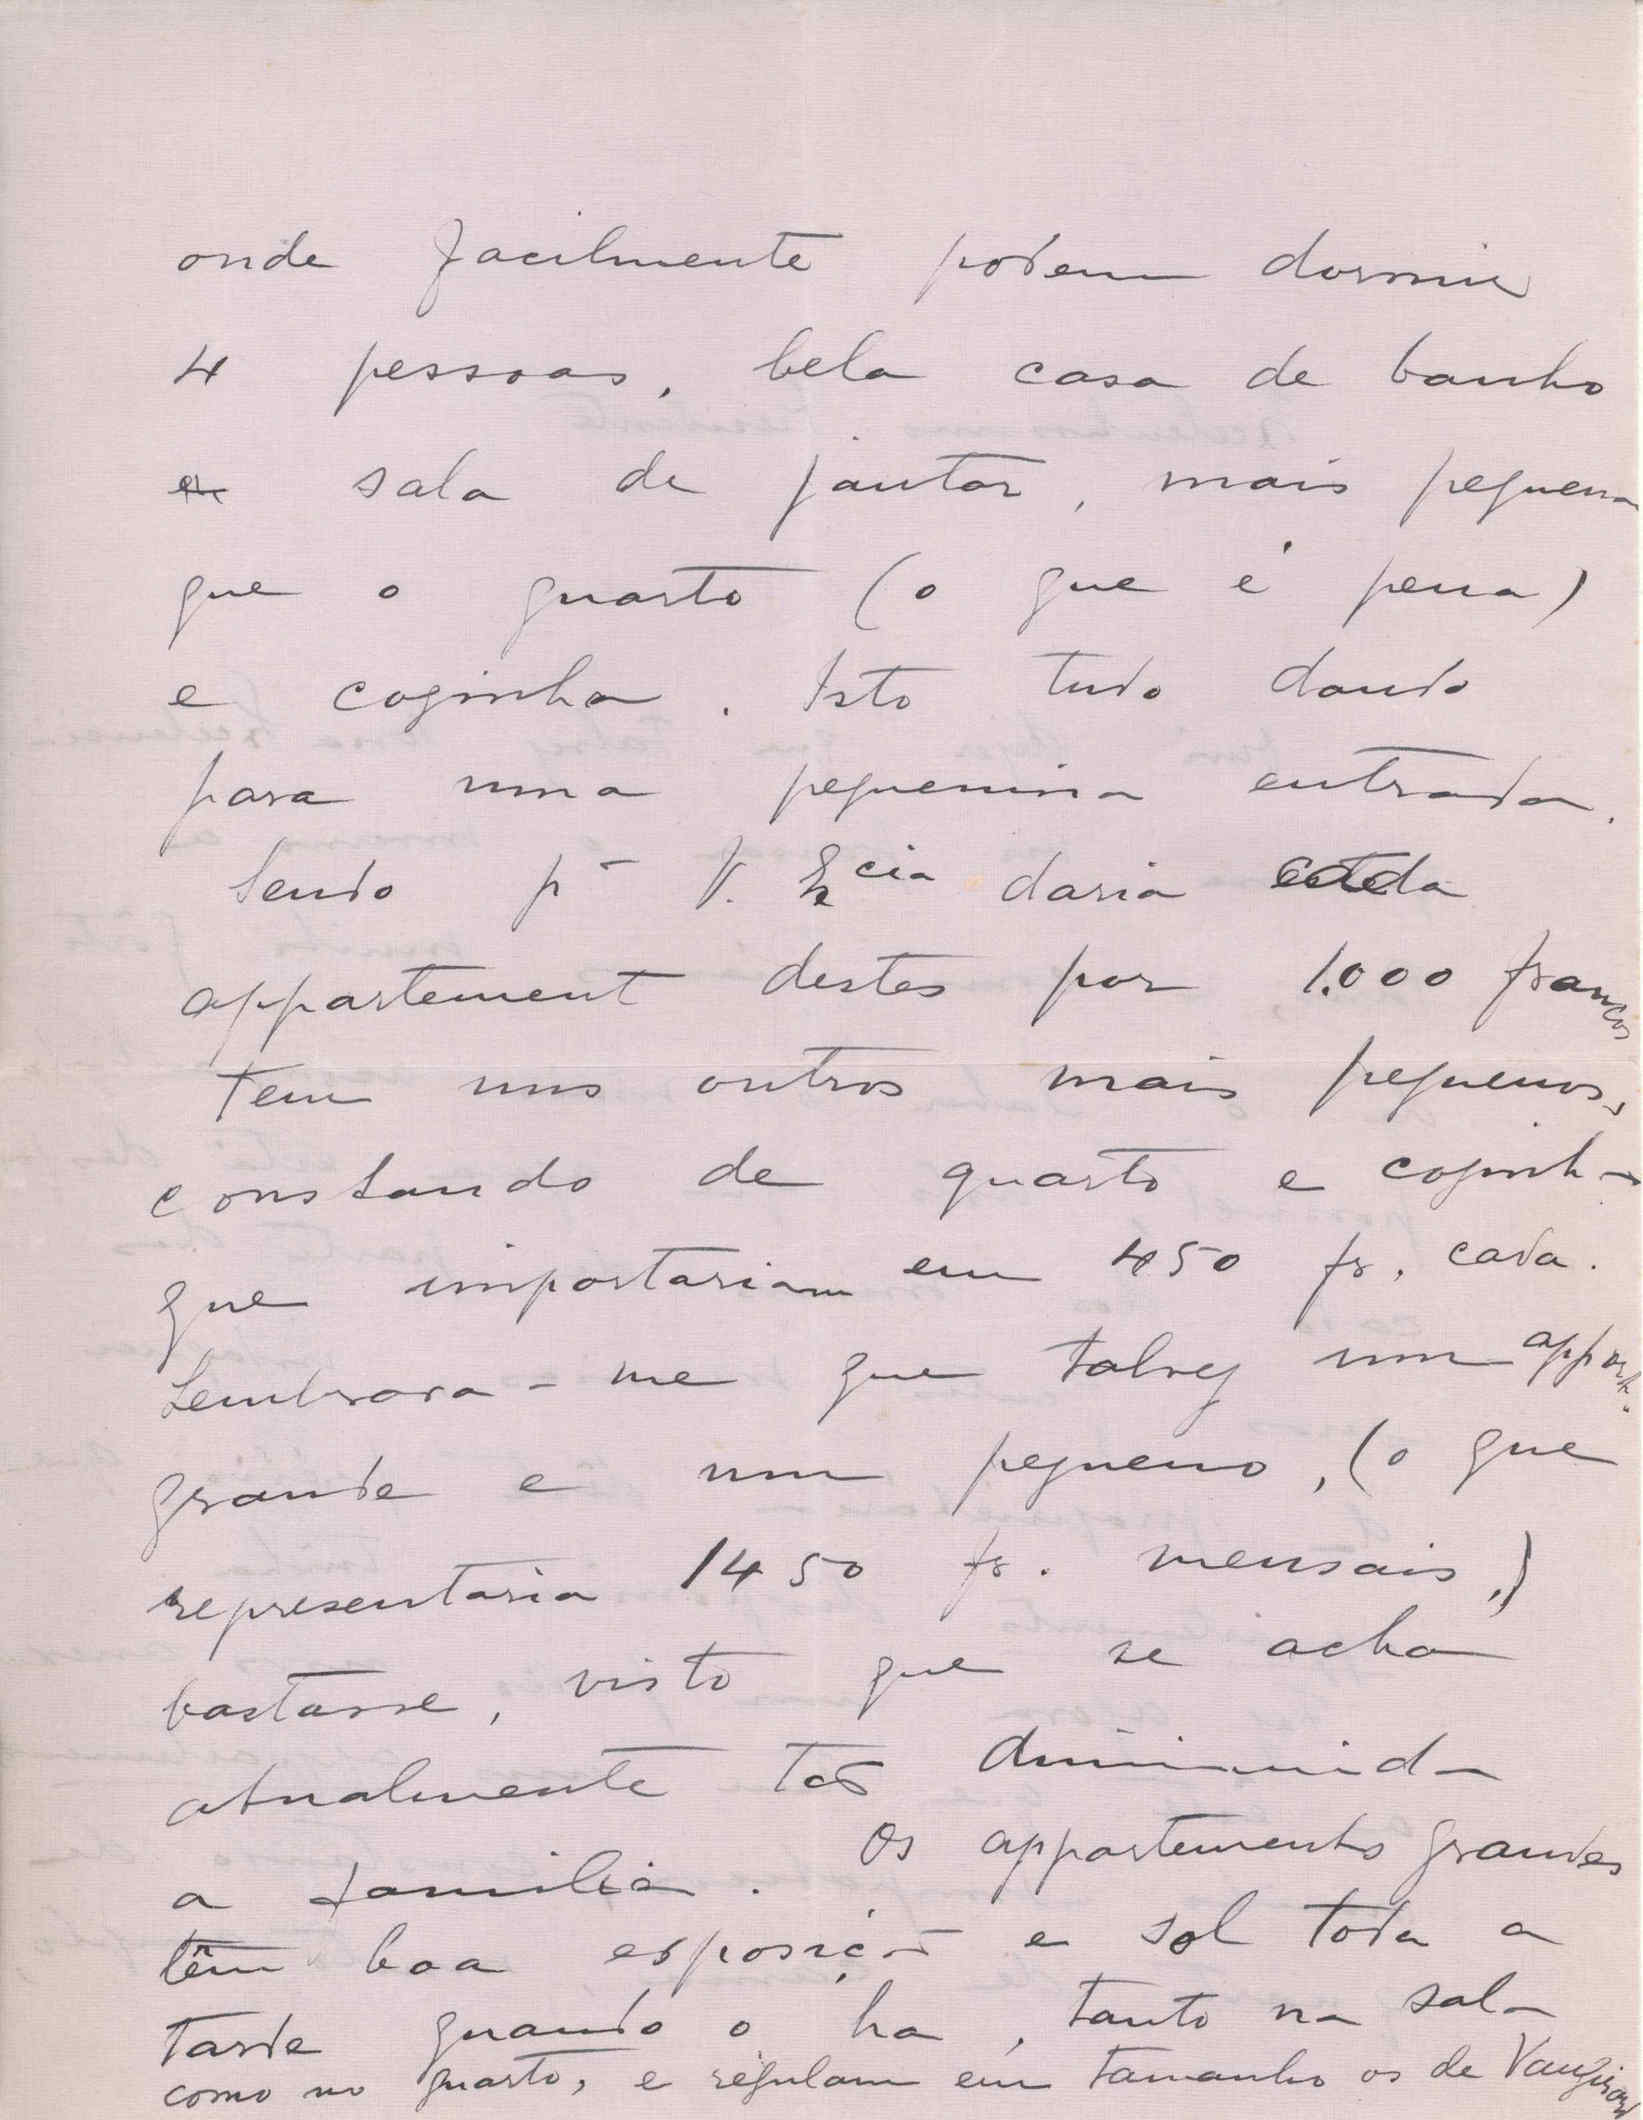 onde facilmente podem dormir
4 pessoas, bela casa de banho
sala de jantar, mais pequena
que o quarto (o que é pena)
e cozinha. Isto tudo dando
para uma pequenina entrada.
Sendo pª V. Excia daria cada
appartement destes por 1.000 francos
Tem uns outros mais pequenos,
constando de quarto e cozinha
que importariam em 450 fr. cada.
Lembrara-me que talvez um appart.
grande e um pequeno, (o que
representaria 1450 fr. mensais,)
bastasse, visto que se acha
atualmente tão diminuida
a familia. Os appartements grandes
têm boa exposição e sol toda a
tarde quando o ha, tanto na sala
como no quarto, e regulam em tamanho os de Vaugirard